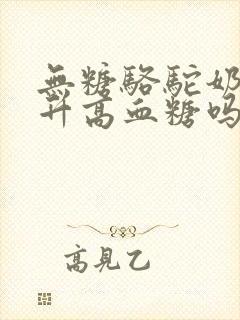 無糖駱駝奶
升高血糖吗
高見乙